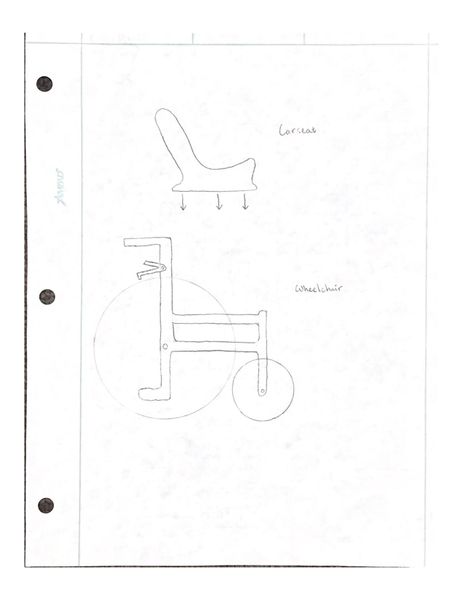 Carseat
Wheelchair